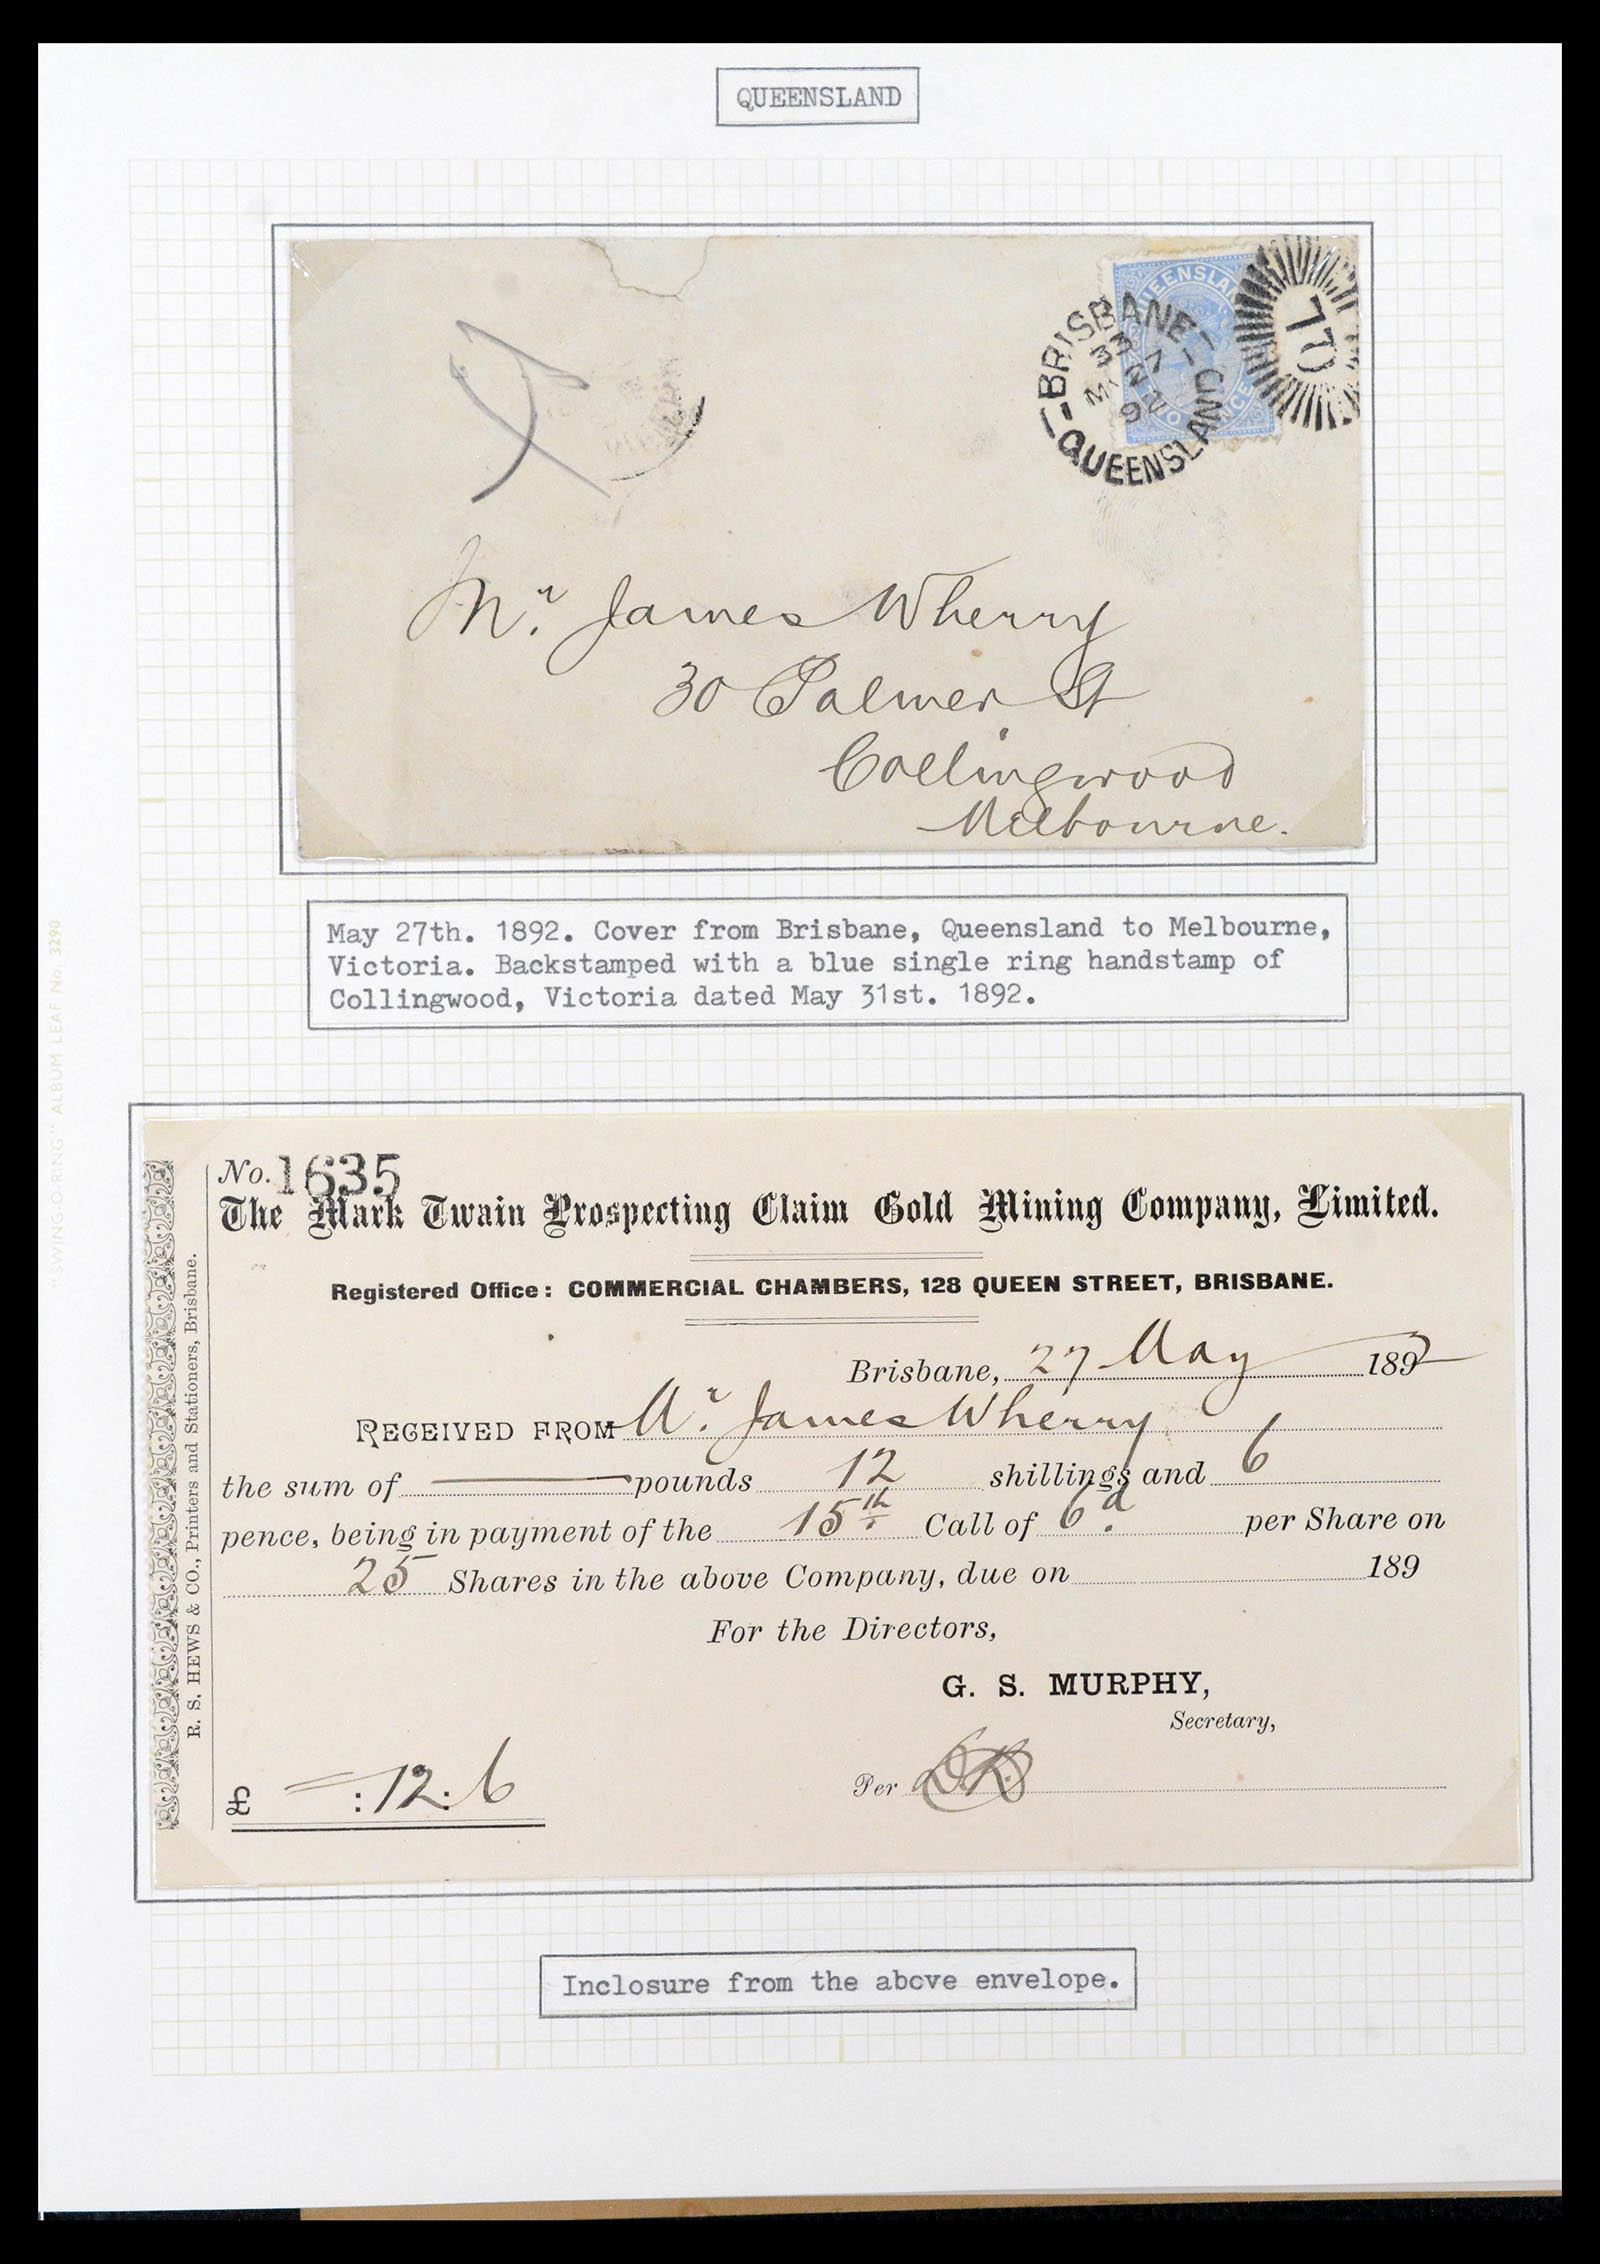 QUEENSLAND
QUEENSLAND
BRISBANE
27
92
QUEENSLAND
QL
Mr. James Wherry
30 Palmer St
Collingwood
Melbourne.
May 27th. 1892. Cover from Brisbane, Queensland to Melbourne,
Victoria. Backstamped with a blue single ring handstamp of
Collingwood, Victoria dated May 31st. 1892.
"SWING-O-RING" ALBUM LEAF No. 3290
R. S. HEWS & CO., Printers and Stationers, Brisbane.
No. 1635
The Mark Twain Prospecting Claim Gold Mining Company, Limited.
Registered Office: COMMERCIAL CHAMBERS, 128 QUEEN STREET, BRISBANE.
Brisbane, 27 May 1892
RECEIVED FROM Mr. James Wherry
the sum of pounds 12 shillings and 6
pence, being in payment of the 15th Call of 6d. per Share on
25 Shares in the above Company, due on 189
For the Directors,
G. S. MURPHY,
Secretary,
£ : 12 : 6
Per
Inclosure from the above envelope.